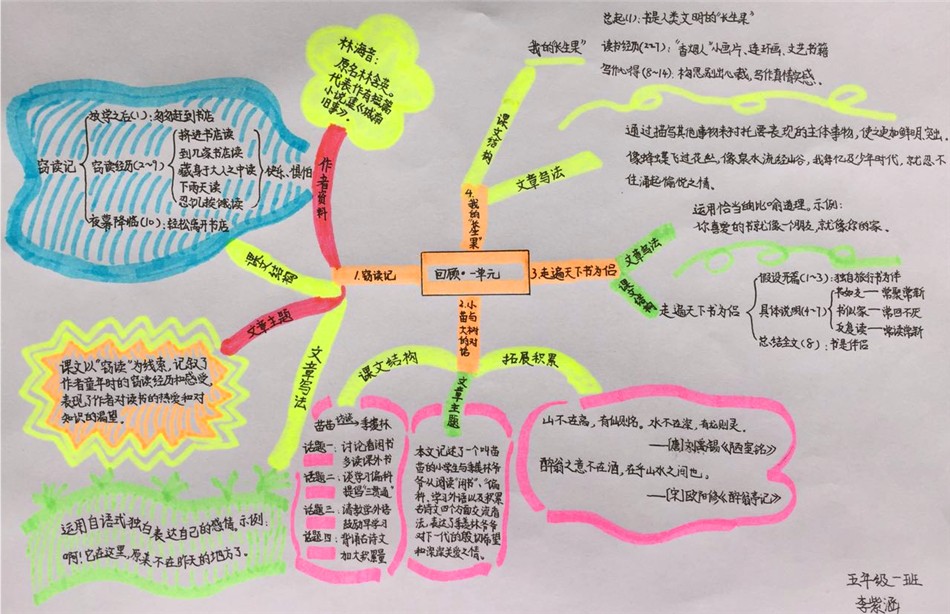 回顾·一单元
1.窃读记
作者资料
林海音：
原名林含英。
代表作有短篇
小说集《城南
旧事》。
课文结构
窃读记
放学之后(1)：匆匆赶到书店
窃读经历(2~9)
挤进书店读
到几家书店读
藏身于大人之中读
下雨天读
忍饥挨饿读
快乐、惧怕
夜幕降临(10)：轻松离开书店
文章主题
课文以"窃读"为线索，记叙了
作者童年时的窃读经历和感受，
表现了作者对读书的热爱和对
知识的渴望。
文章写法
运用自语式独白表达自己的感情。示例：
啊！它在这里，原来不在昨天的地方了。
2.小苗与大树的对话
课文结构
苗苗 访谈 季羡林
话题一：讨论看闲书
多读课外书
话题二：谈学习偏科
提倡"三贯通"
话题三：请教学外语
鼓励早学习
话题四：背诵古诗文
加大积累量
文章主题
本文记述了一个叫苗
苗的小学生与季羡林爷
爷从阅读"闲书"、"偏
科、学习外语以及积累
古诗文四个方面交流看
法，表达了季羡林爷爷
对下一代的殷切希望
和深深关爱之情。
拓展积累
山不在高，有仙则名。水不在深，有龙则灵。
——[唐]刘禹锡《陋室铭》
醉翁之意不在酒，在乎山水之间也。
——[宋]欧阳修《醉翁亭记》
3.走遍天下书为侣
文章写法
运用恰当的比喻讲道理。示例：
你喜爱的书就像一个朋友，就像你的家。
课文结构
走遍天下书为侣
假设开篇(1~3)：独自旅行书为伴
具体说明(4~7)
书如友——常聚常新
书似家——常回不厌
反复读——常读常新
总结全文(8)：书是伴侣
4.我的"长生果"
课文结构
我的"长生果"
总起(1)：书是人类文明的"长生果"
读书经历(2~7)："香烟人"小画片、连环画、文艺书籍
写作心得(8~14)：构思别出心裁，写作真情实感。
文章写法
通过描写其他事物来衬托要表现的主体事物，使之更加鲜明突出。
像蜂蝶飞过花丛，像泉水流经山谷，我每忆及少年时代，就忍不
住涌起愉悦之情。
五年级一班
李紫涵